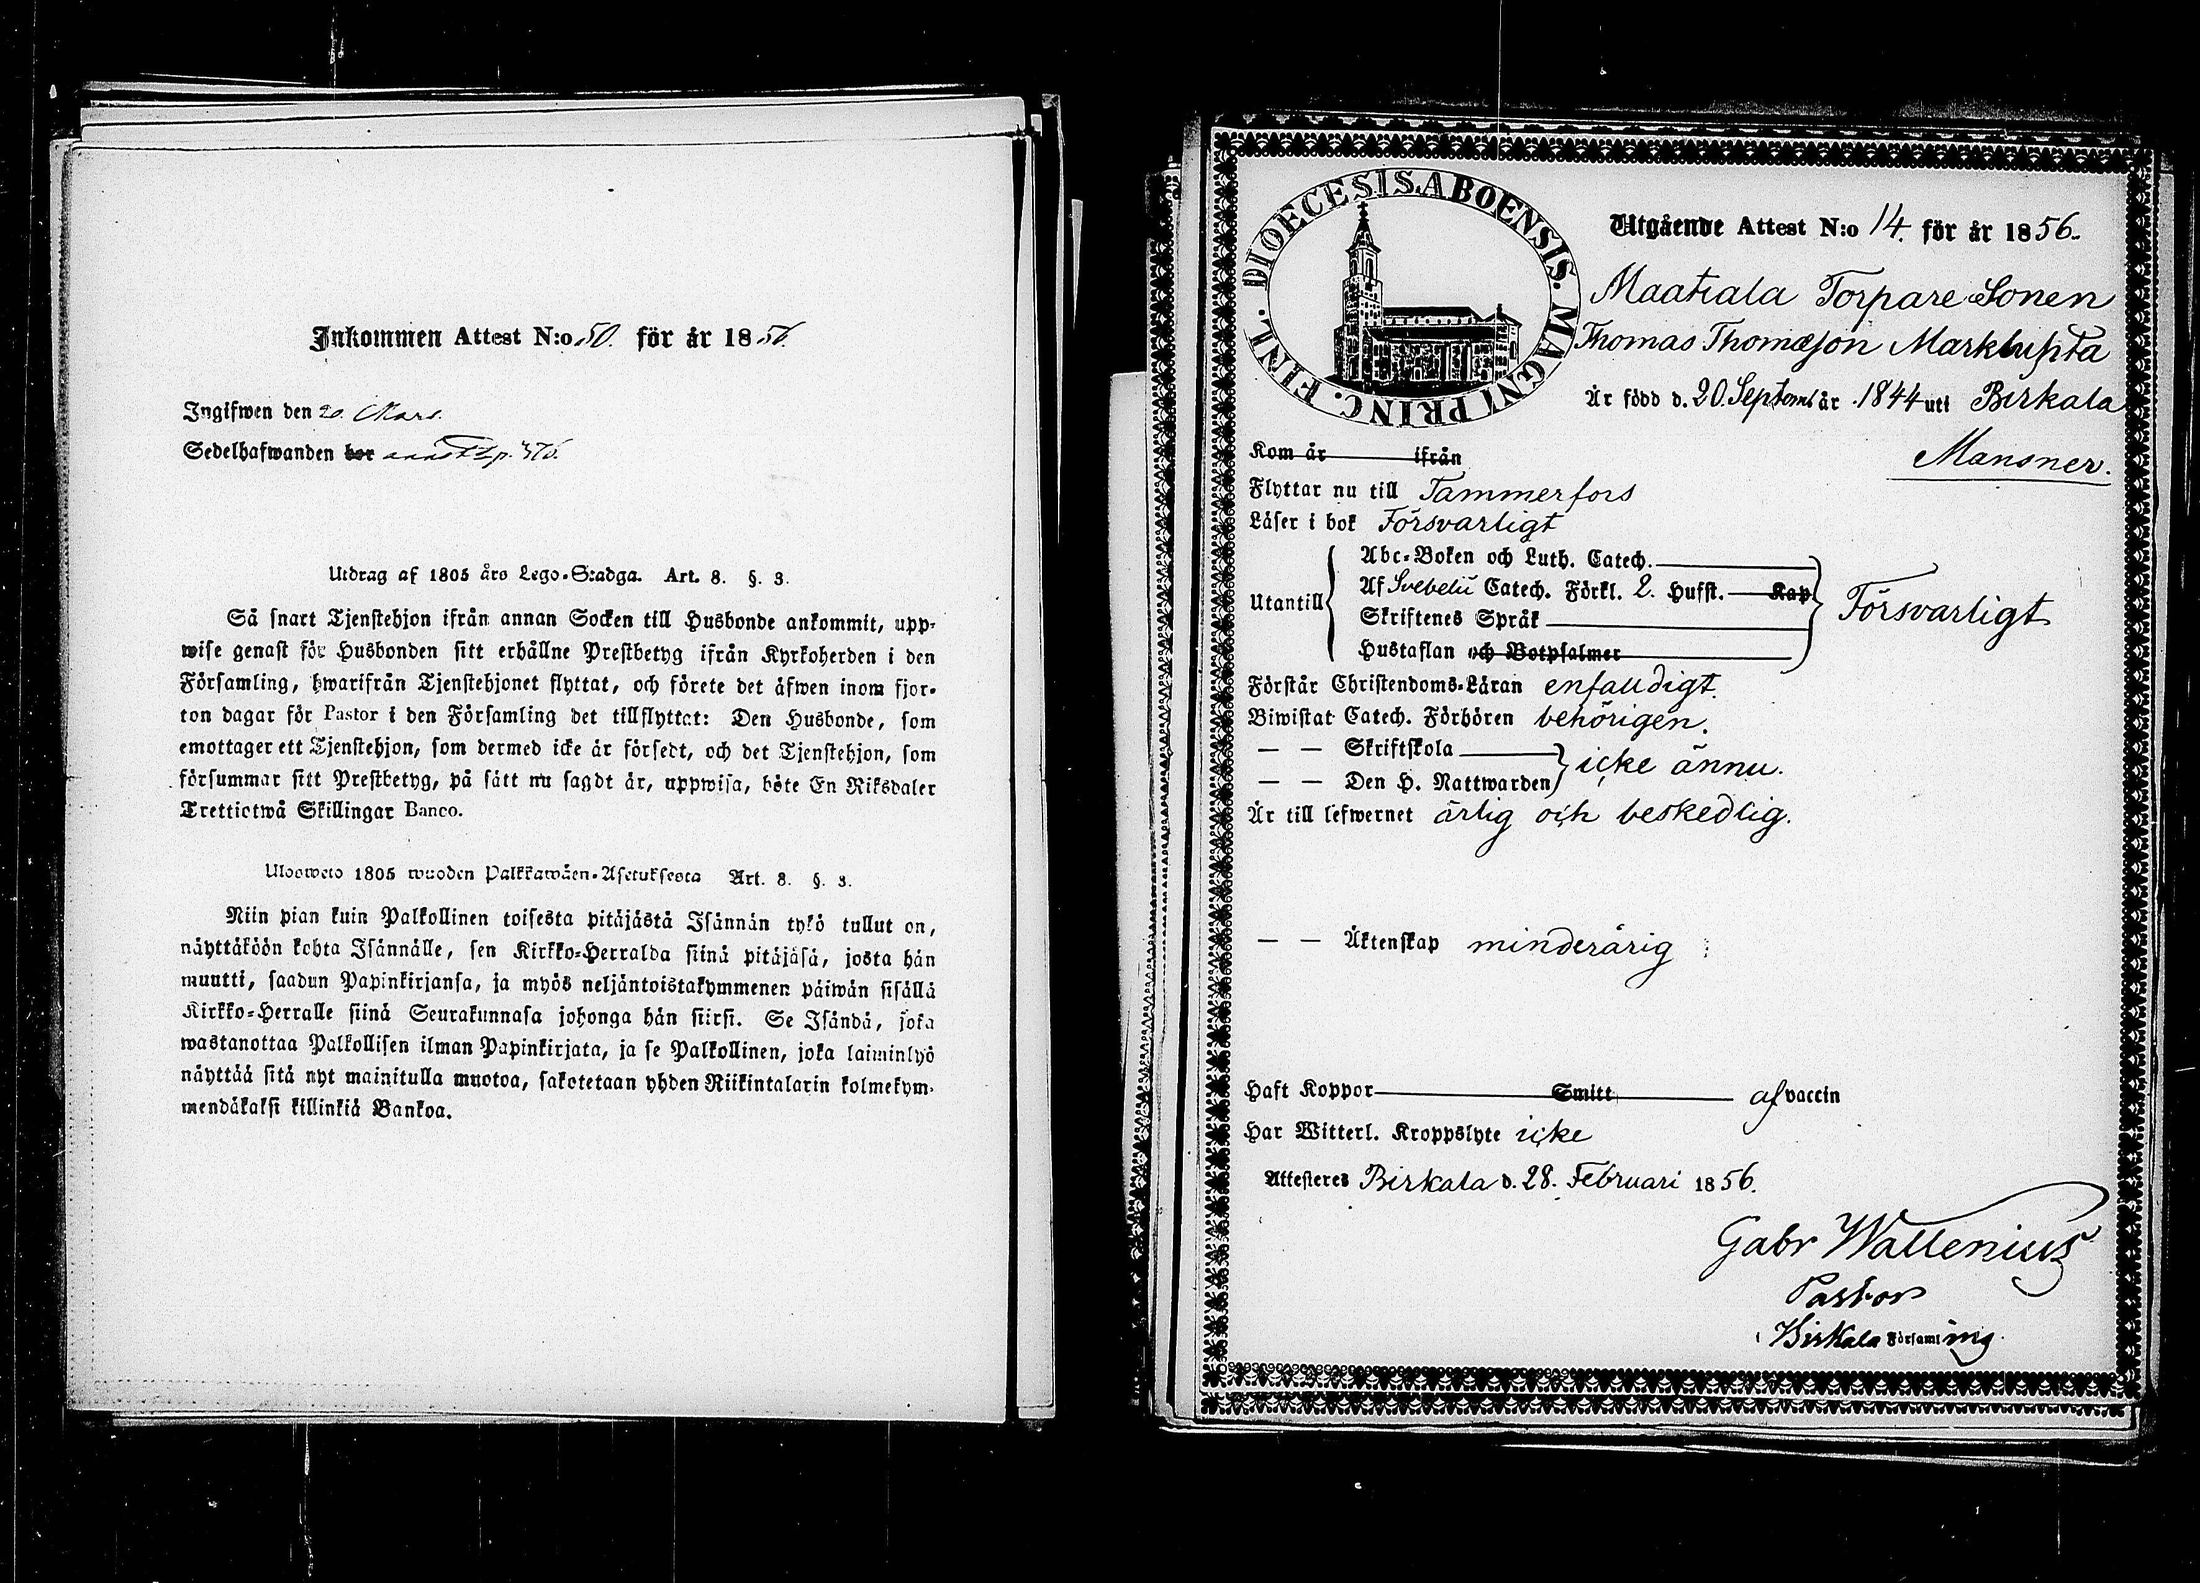 Inkommen Attest N:o 50. för år 1856.
Ingifwen den 20. Mars.
Sedelhafwanden bor
Utdrag af 1805 års Lego-Stadga. Art. 8. §. 3.
Så snart Tjenstehjon ifrån annan Socken till Husbonde ankommit, upp-
wise genast för Husbonden sitt erhållne Prestbetyg ifrån Kyrkoherden i den
Församling, hwarifrån Tjenstehjonet flyttat, och förete det äfwen inom fjor-
ton dagar för Pastor i den Församling det tillflyttat: Den Husbonde, som
emottager ett Tjenstehjon, som dermed icke är försedt, och det Tjenstehjon, som
försummar sitt Prestbetyg, på sätt nu sagdt är, uppwisa, böte En Riksdaler
Trettiotwå Skillingar Banco.
Ulosweto 1805 wuoden Palkkawäen-Asetuksesta Art. 8. §. 3.
Niin pian kuin Palkollinen toisesta pitäjästä Isännän tykö tullut on,
näyttäköön kohta Isännälle, sen Kirkko-Herralda siinä pitäjäsä, josta hän
muutti, saadun Papinkirjansa, ja myös neljäntoistakymmenen päiwän sisällä
Kirkko-Herralle siinä Seurakunnasa johonga hän siirsi. Se Isändä, joka
wastanottaa Palkollisen ilman Papinkirjata, ja se Palkollinen, joka laiminlyö
näyttää sitä nyt mainitulla muotoa, sakotetaan yhden Riikintalarin kolmekym-
mendäkaksi killinkiä Bankoa.
DIOECESIS.ABOENSIS. MAGNI PRINC. FINL.
Utgående Attest N:o 14. för år 1856.
Maatiala Torpare Sonen
Thomas Thomæson Marklupta
Är född d. 20. Septemb år 1844 uti Birkala
Kom år ifrån
Mansner.
Flyttar nu till Tammerfors
Läser i bok Försvarligt
Utantill
Abc-Boken och Luth. Catech.
Af Svebelii Catech. Förkl. 2. Hufst. Kap
Skriftenes Språk
Hustaflan och Botpsalmer
Försvarligt
Förstår Christendoms-Läran enfaldigt.
Biwistat Catech. Förhören behörigen.
— — Skriftskola
— — Den H. Nattwarden
icke ännu.
Är till lefwernet ärlig och beskedlig.
— — Äktenskap minderårig
Haft Koppor Smitt af vaccin
Har Witterl. Kroppslyte icke
Attesteres Birkala d. 28. Februari 1856.
Gabr Wallenius
Pastor
i Birkala Församling.